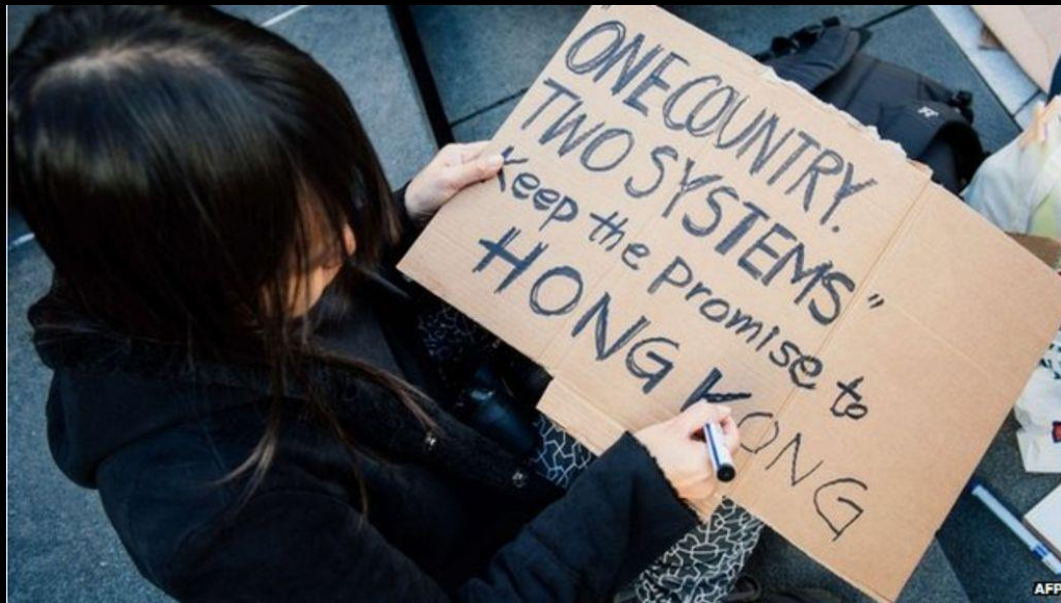 "ONE COUNTRY.
TWO SYSTEMS"
Keep the Promise to
HONG KONG
AFP